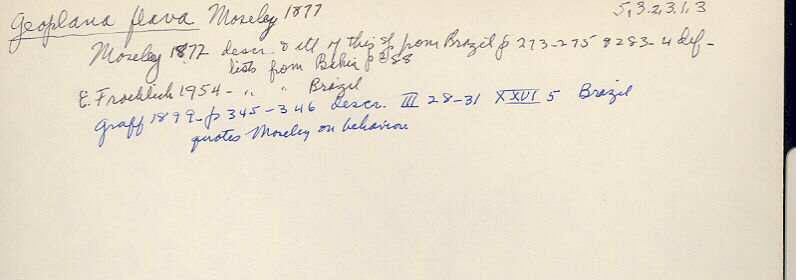 Geoplana flava Moseley 1877 5,3.2,3.1,3
Moseley 1877 descr. & ill of this sp from Brazil p 273-275 & 283-4 def-
lists from Bahia p 288
E. Froehlich 1954 - " " Brazil
Graff 1899-p 345-346 descr. III 28-31 XXVI 5 Brazil
quotes Moseley on behavior.